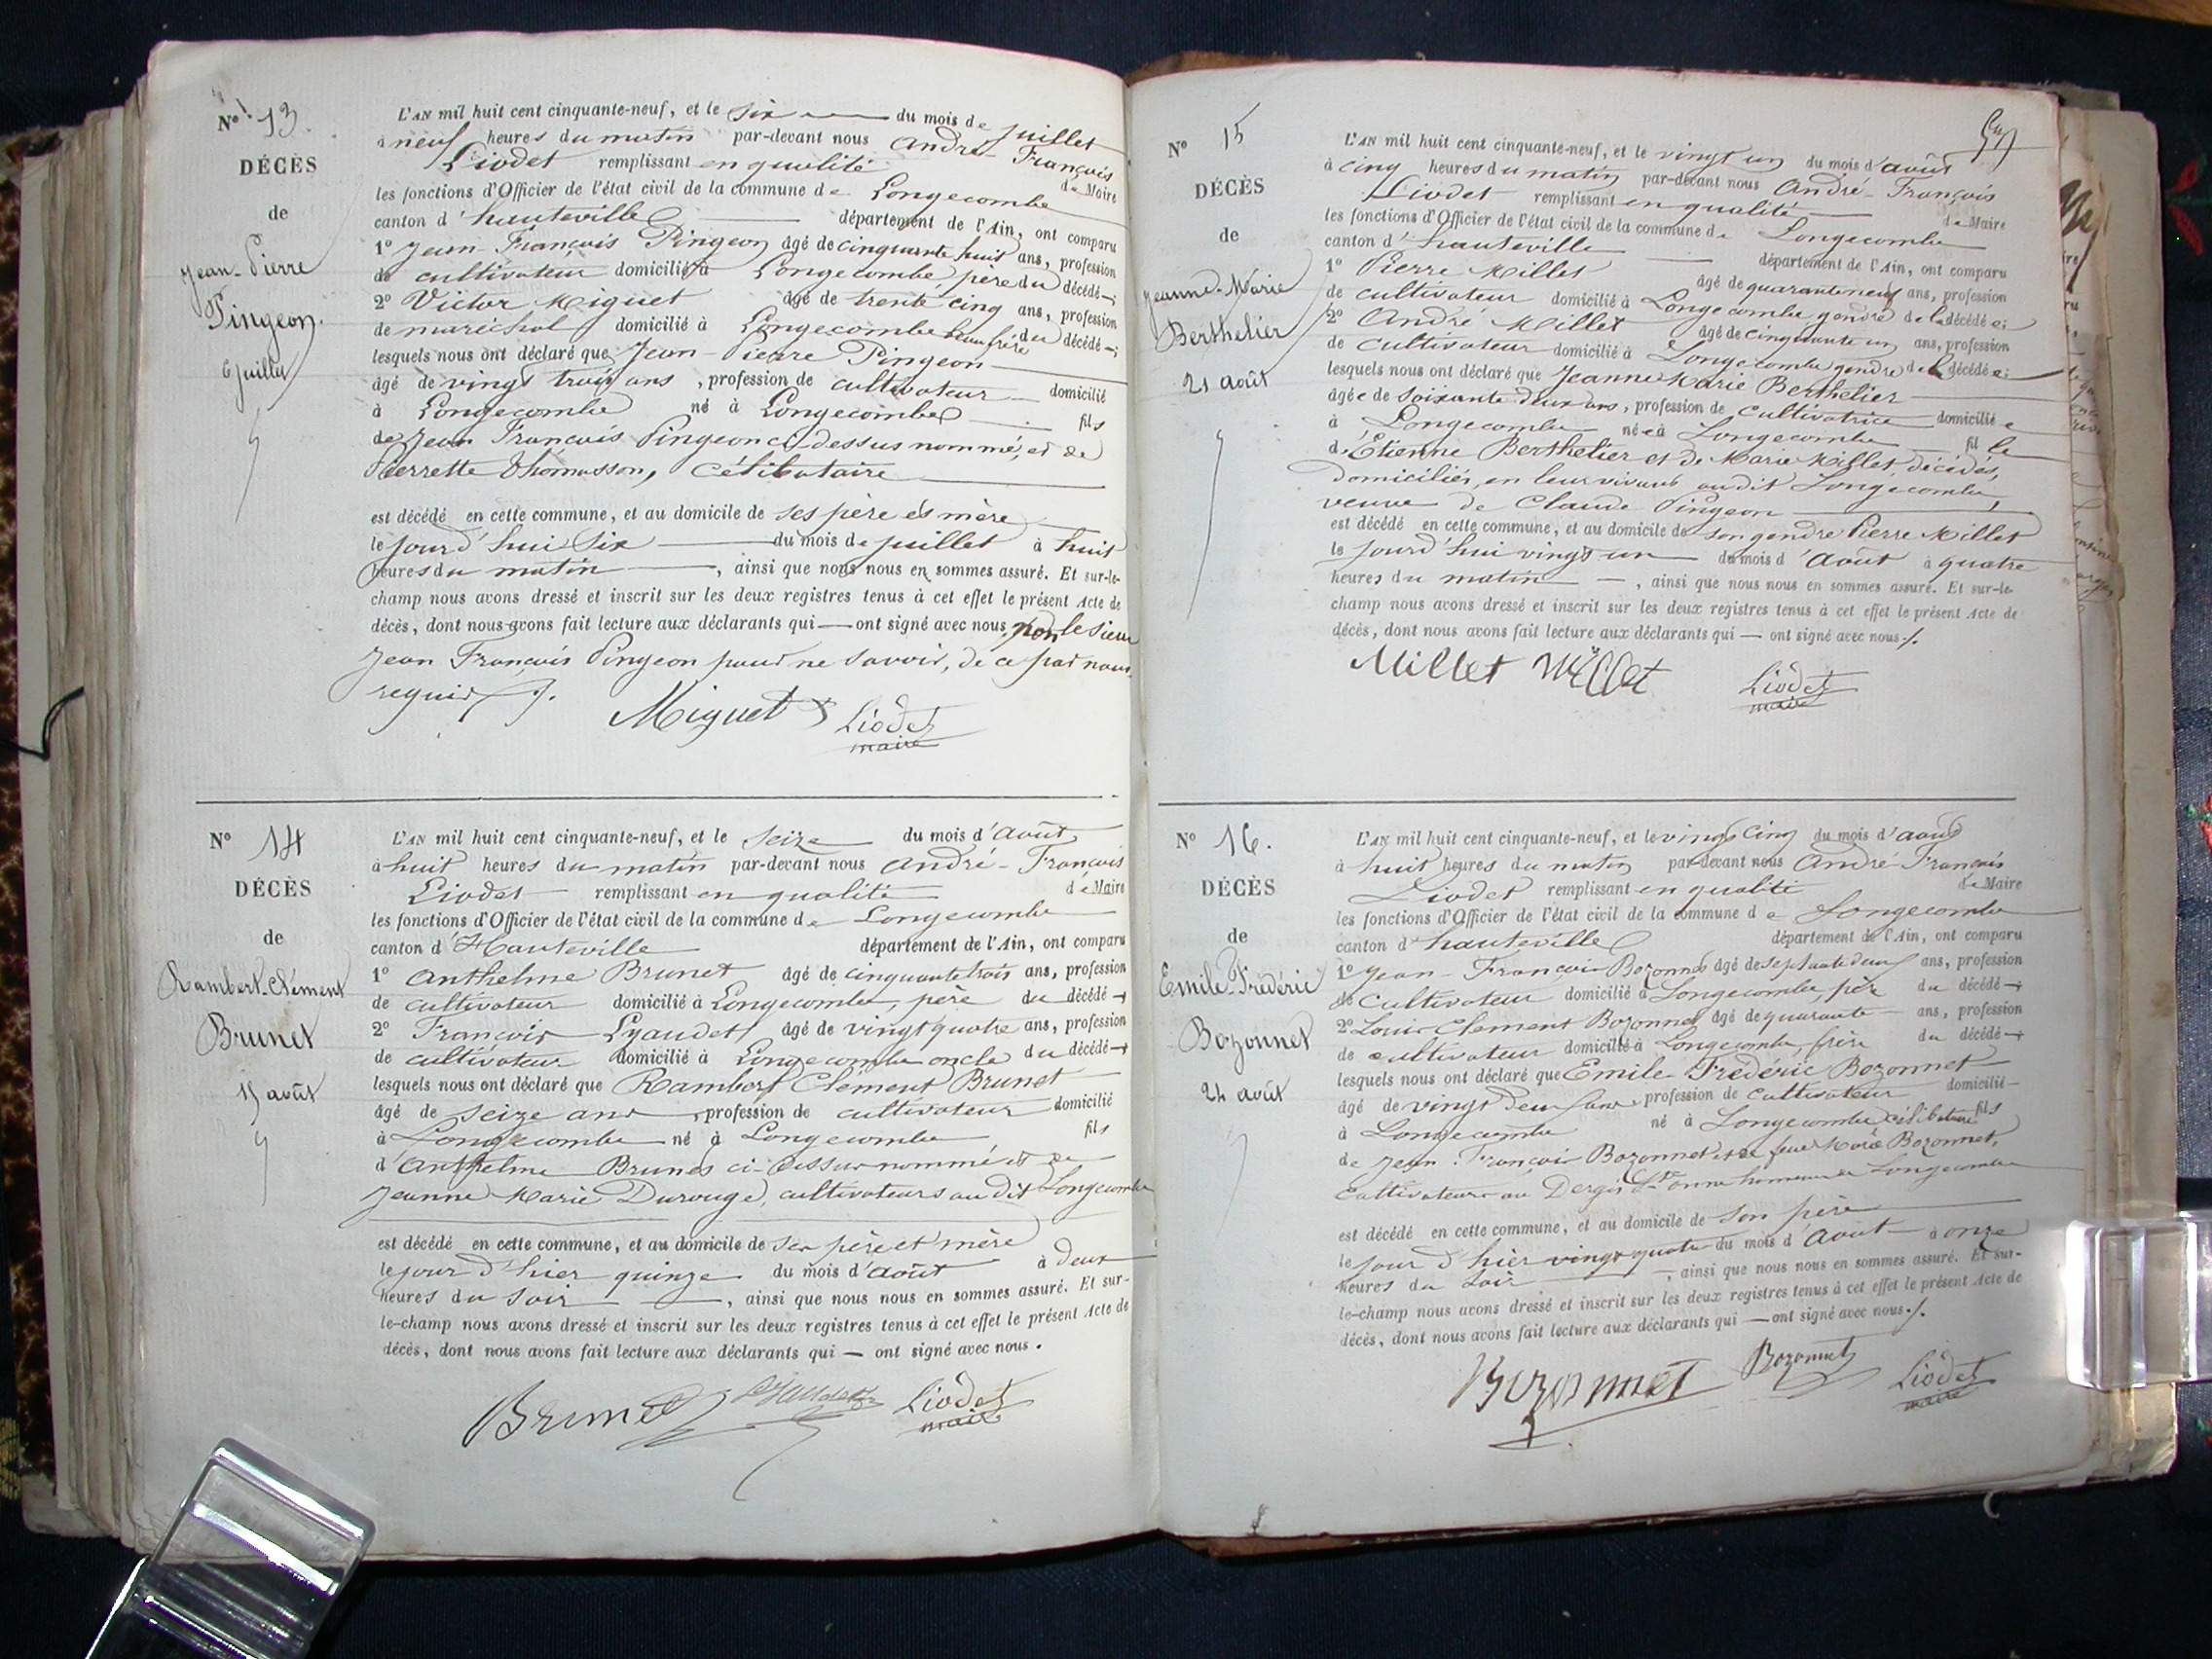 N° 13.
DÉCÈS
de
Jean-Pierre
Pingeon.
6 Juillet
L'AN mil huit cent cinquante-neuf, et le six du mois de Juillet
à neuf heures du matin par-devant nous André-François
Liodet remplissant en qualité de Maire
les fonctions d'Officier de l'état civil de la commune de Longecombe
canton d'hauteville département de l'Ain, ont comparu
1° Jean-François Pingeon âgé de cinquante huit ans, profession
de cultivateur domicilié à Longecombe, père du décédé
2° Victor Miguet âgé de trente cinq ans, profession
de maréchal domicilié à Longecombe beau frère du décédé
lesquels nous ont déclaré que Jean-Pierre Pingeon
âgé de vingt trois ans, profession de cultivateur domicilié
à Longecombe né à Longecombe fils
de Jean François Pingeon ci-dessus nommé, et de
Pierrette Thomasson, célibataire
est décédé en cette commune, et au domicile de ses père et mère
le jourd'hui six du mois de juillet à huit
heures du matin, ainsi que nous nous en sommes assuré. Et sur-le-
champ nous avons dressé et inscrit sur les deux registres tenus à cet effet le présent Acte de
décès, dont nous avons fait lecture aux déclarants qui — ont signé avec nous, non le sieur
Jean François Pingeon pour ne savoir, de ce par nous
requis ./.
Miguet Liodet
maire
N° 14
DÉCÈS
de
Rambert-Clément
Brunet
15 août
L'AN mil huit cent cinquante-neuf, et le seize du mois d'Août
à huit heures du matin par-devant nous André-François
Liodet remplissant en qualité de Maire
les fonctions d'Officier de l'état civil de la commune de Longecombe
canton d'Hauteville département de l'Ain, ont comparu
1° Anthelme Brunet âgé de cinquante trois ans, profession
de cultivateur domicilié à Longecombe, père du décédé
2° François Lyaudet âgé de vingt quatre ans, profession
de cultivateur domicilié à Longecombe oncle du décédé
lesquels nous ont déclaré que Rambert Clément Brunet
âgé de seize ans, profession de cultivateur domicilié
à Longecombe né à Longecombe fils
d'Anthelme Brunet ci-dessus nommé et de
Jeanne Marie Durouge, cultivateurs au dit Longecombe
est décédé en cette commune, et au domicile de ses père et mère
le jour d'hier quinze du mois d'août à deux
heures du soir, ainsi que nous nous en sommes assuré. Et sur-
le-champ nous avons dressé et inscrit sur les deux registres tenus à cet effet le présent Acte de
décès, dont nous avons fait lecture aux déclarants qui — ont signé avec nous.
Brunet Lyaudet Liodet
maire
N° 15
DÉCÈS
de
Jeanne-Marie
Berthelier
21 août
L'AN mil huit cent cinquante-neuf, et le vingt un du mois d'août
à cinq heures du matin par-devant nous André-François
Liodet remplissant en qualité de Maire
les fonctions d'Officier de l'état civil de la commune de Longecombe
canton d'hauteville département de l'Ain, ont comparu
1° Pierre Millet âgé de quarante neuf ans, profession
de cultivateur domicilié à Longecombe gendre de la décédée;
2° André Millet âgé de cinquante un ans, profession
de cultivateur domicilié à Longecombe gendre de la décédée;
lesquels nous ont déclaré que Jeanne Marie Berthelier
âgée de soixante deux ans, profession de cultivatrice domiciliée
à Longecombe née à Longecombe fille
d'Étienne Berthelier et de Marie Millet décédés,
domiciliés, en leur vivant audit Longecombe,
veuve de Claude Pingeon
est décédé en cette commune, et au domicile de son gendre Pierre Millet
le jourd'hui vingt un du mois d'Août à quatre
heures du matin —, ainsi que nous nous en sommes assuré. Et sur-le-
champ nous avons dressé et inscrit sur les deux registres tenus à cet effet le présent Acte de
décès, dont nous avons fait lecture aux déclarants qui — ont signé avec nous ./.
Millet Millet Liodet
maire
N° 16.
DÉCÈS
de
Emile-Frédéric
Bozonnet
24 août
L'AN mil huit cent cinquante-neuf, et le vingt cinq du mois d'août
à huit heures du matin par-devant nous André-François
Liodet remplissant en qualité de Maire
les fonctions d'Officier de l'état civil de la commune de Longecombe
canton d'hauteville département de l'Ain, ont comparu
1° Jean-François Bozonnet âgé de septante deux ans, profession
de cultivateur domicilié à Longecombe, père du décédé
2° Louis Clément Bozonnet âgé de quarante ans, profession
de cultivateur domicilié à Longecombe, frère du décédé
lesquels nous ont déclaré que Emile Frédéric Bozonnet
âgé de vingt deux ans profession de cultivateur domicilié
à Longecombe né à Longecombe célibataire fils
de Jean-François Bozonnet et de feue Marie Bozonnet,
cultivateurs au Dergis hameau de Longecombe
est décédé en cette commune, et au domicile de son père
le jour d'hier vingt quatre du mois d'Août à onze
heures du soir, ainsi que nous nous en sommes assuré. Et sur-
le-champ nous avons dressé et inscrit sur les deux registres tenus à cet effet le présent Acte de
décès, dont nous avons fait lecture aux déclarants qui — ont signé avec nous ./.
Bozonnet Bozonnet Liodet
maire